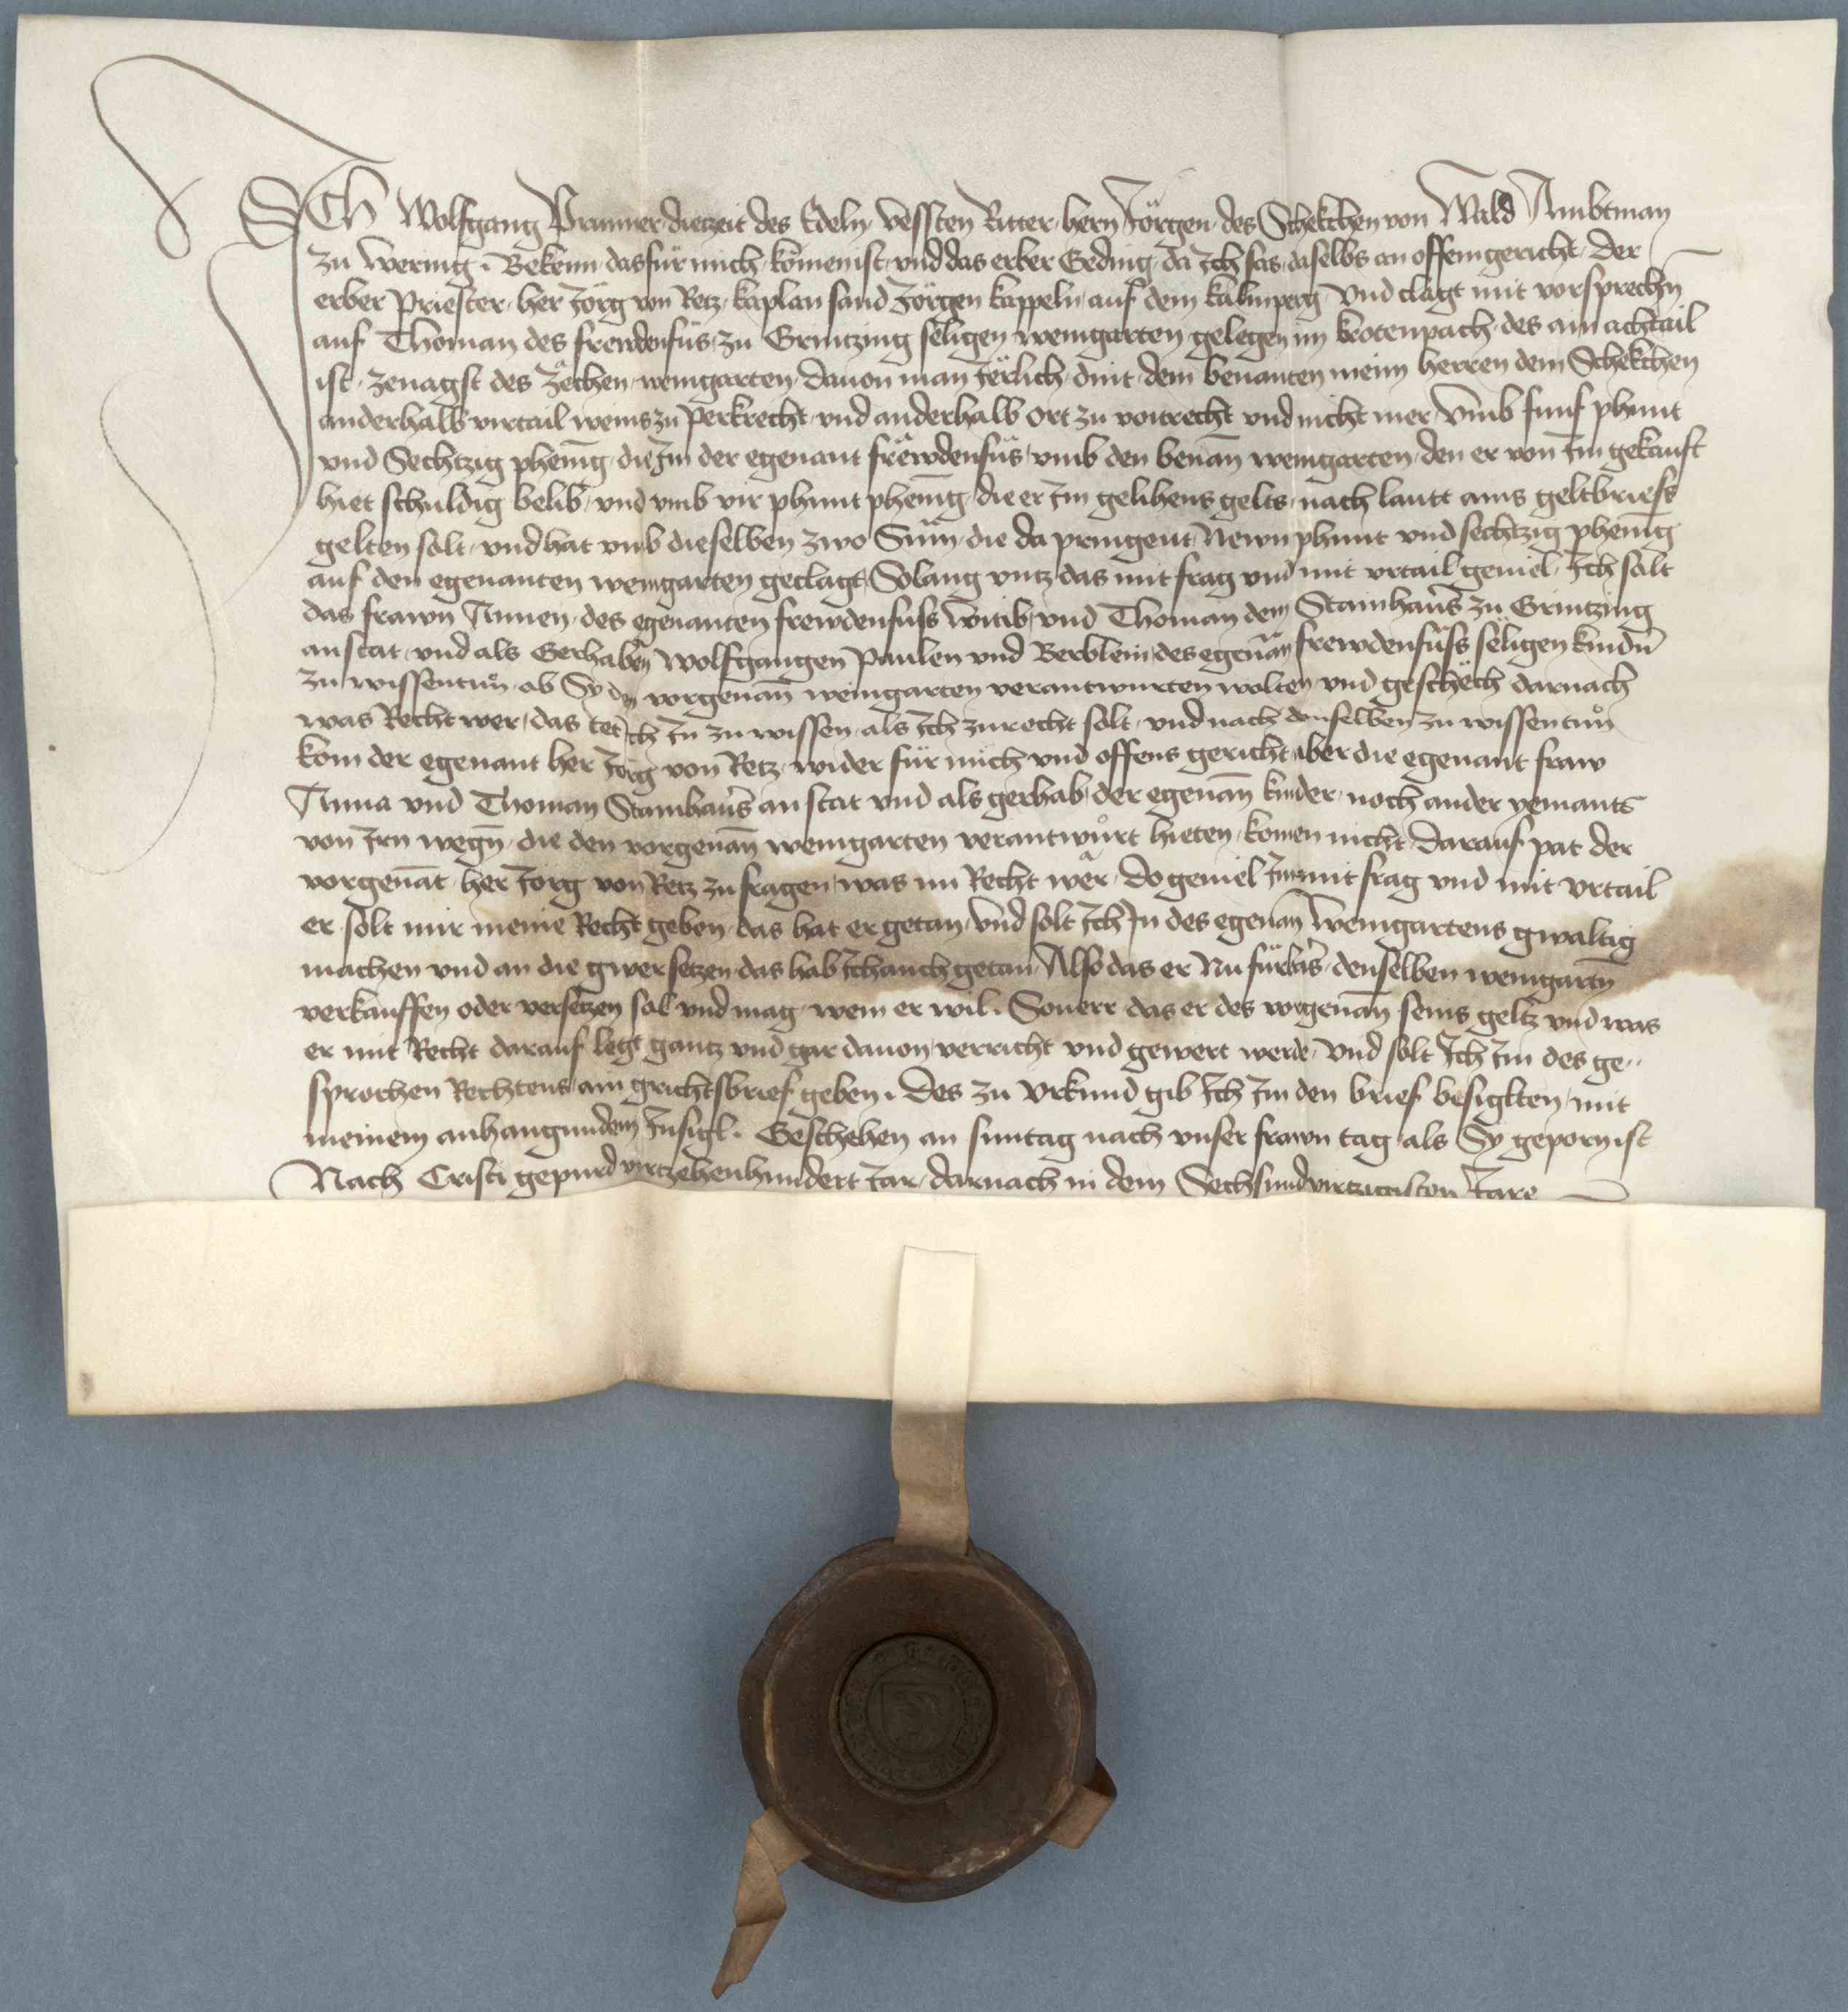 ICh Wolfgang Prunner dietzeit des Edeln vessten Ritter hern Jörgen des Schekchen von Wald Ambtman
zu Wering. Bekenn das für mich komen ist vnd das erber Geding da Ich sas daselbs an offem gericht der
erber Priester her Jörg von Retz kaplan sand Jörgen kappeln auf dem kalmperg vnd clagt mit vorsprechn̄
auf Thoman des frewdenfüs zu Grintzing seligen weingarten gelegen im krotenpach des ain achtail
ist zenagst des Zächen weingarten dauon man Jerlich dint dem benanten meim herren dem Schekchen
anderhalb virtail weins zu perkrecht vnd anderhalb ort zu voitrecht vnd nicht mer vmb funf phunt
vnd Sechtzig phenīg die Im der egenant frëwdenfüs vmb den benān weingarten den er von Im gekauft
hiet schuldig belib vnd vmb vir phunt phenīg die er Im gelihens gelts nach lautt ains geltbriefs
gelten solt vnd hat vmb dieselben zwo Sum̄ die da pringent Newn phunt vnd sechtzig phenīg
auf den egenanten weingarten geclagt Solang vntz das mit frag vnd mit vrtail geuiel Ich solt
das frawn Annen des egenanten frewdenfuss witib vnd Thoman dem Stainhaus̄ zu Grintzing
anstat vnd als Gerhaben Wolfgangen Paulen vnd Berblein des egenān frewdenfüss sëligen kindn̄
zu wissentůn ob Sy den vorgenān weingarten verantwurten wolten vnd geschëch darnach
was Recht wer das tet Ich In zu wissen als Ich zurecht solt vnd nach demselben zu wissentůn
kom der egenant her Jörg von Retz wider für mich vnd offens gericht aber die egenant fraw
Anna vnd Thoman Stainhaus̄ anstat vnd als gerhab der egenān kinder noch ander yemants
von Irn wegn̄ die den vorgenān weingarten verantwůrt hieten komen nicht darauf pat der
vorgenāt her Jorg von Retz zu fragen was nu Recht wër do geuiel Im mit frag vnd mit vrtail
er solt mir meine Recht geben das hat er getan vnd solt Ich In des egenān weingartens gwaltig
machen vnd an die gwer setzen das hab Ich auch getan Also das er Nu fürbas̄ denselben weingartn̄
verkauffen oder versetzen sol vnd mag wem er wil. Souerr das er des vorgenān seins geltz vnd was
er mit Recht darauf legt gantz vnd gar dauon verricht vnd gewert werde vnd solt Ich Im des ge..
sprochen Rechtens ain grichtsbrief geben. des zu vrkund gib Ich Im den brief besiglten mit
meinem anhangundem̄ Insigl. Geschehen an suntag nach vnser frawn tag als Sy geporn ist
Nach Cristi gepurd virtzehenhundert Jar darnach in dem Sechsundvirtzigisten Jare